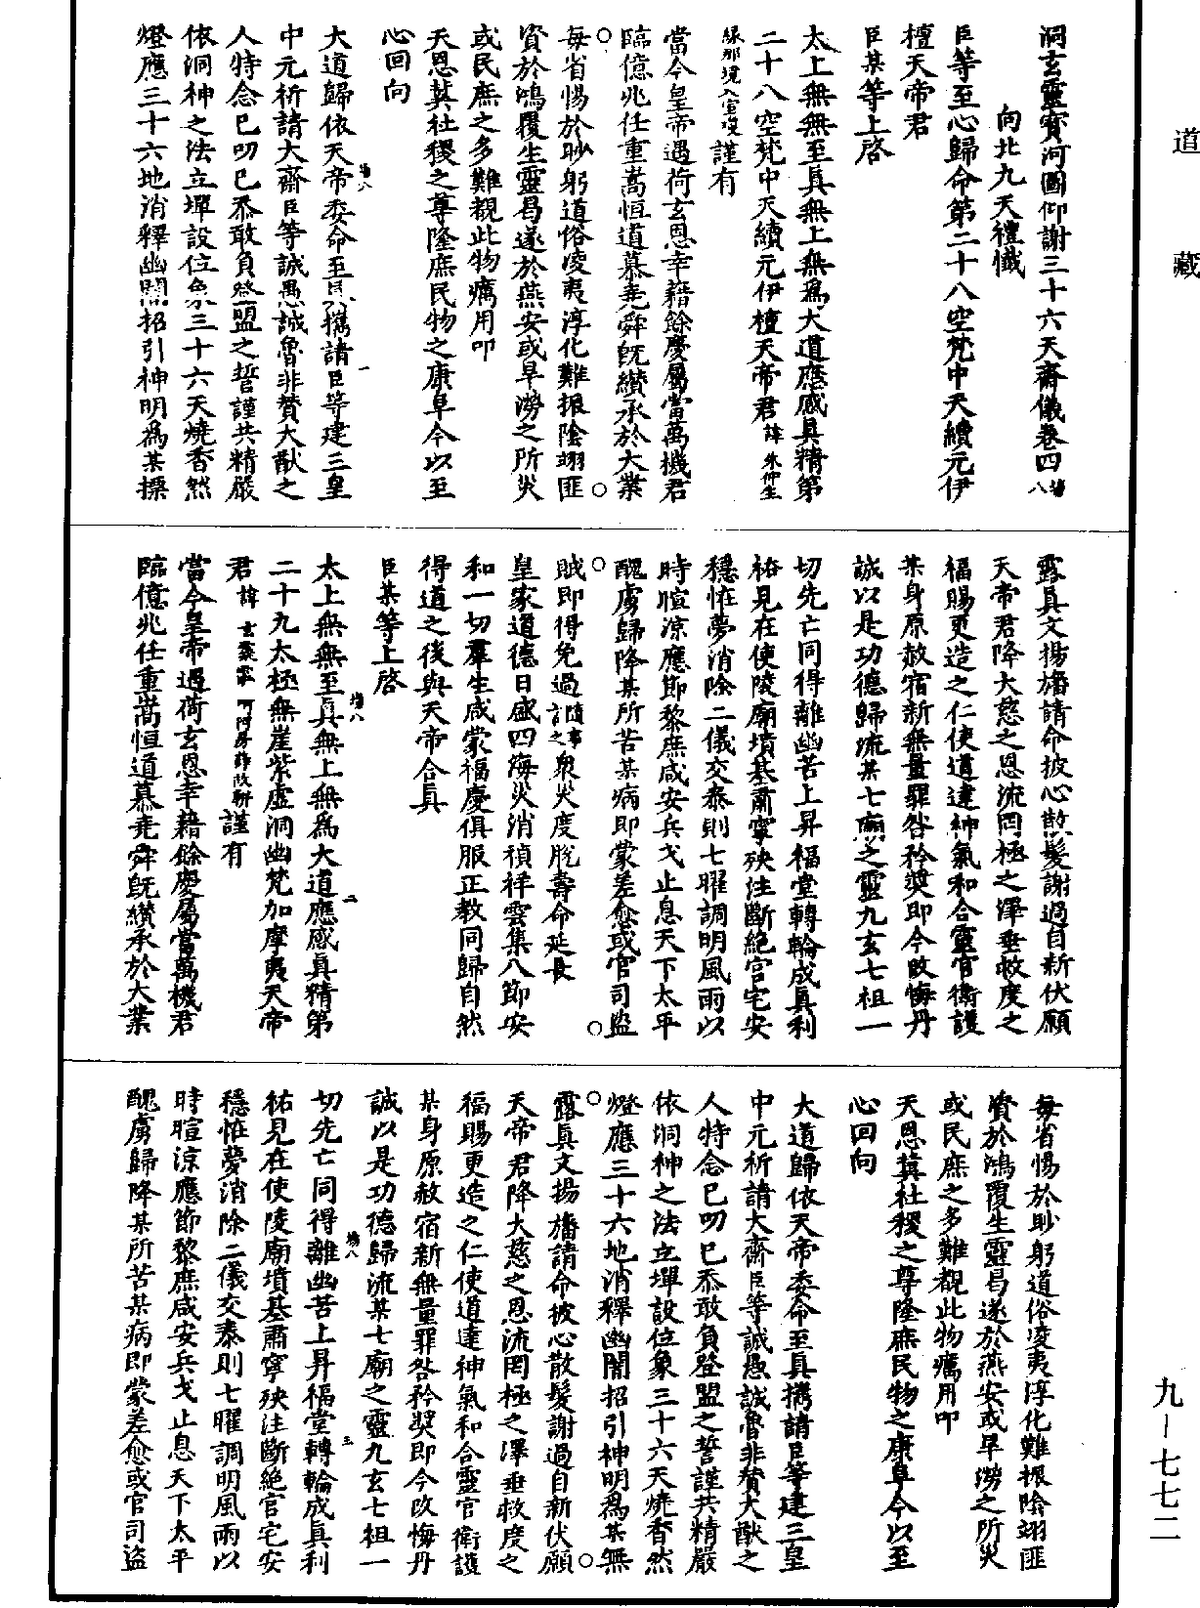 道藏
洞玄靈寶河圖仰謝三十六天齋儀卷四
向北九天禮懺
臣等至心歸命第二十八空梵中天續元伊
檀天帝君
臣某等上啓
太上無無至真無上無爲大道應感真精第
二十八空梵中天續元伊檀天帝君諱
謹有
當今皇帝遇荷玄恩幸藉餘慶屬當萬機君
臨億兆任重嵩恒道慕堯舜既纘承於大業
每省惕於眇躬道俗凌夷淳化難振陰翊匪
資於鴻覆生靈曷遂於燕安或旱澇之所災
或民庶之多難覩此物癘用叩
天恩冀社稷之尊隆庶民物之康阜今以至
心回向
大道歸依天帝委命至真攜請臣等建三皇
中元祈請大齋臣等誠愚誠魯非贊大猷之
人特念已叨已忝敢負登盟之誓謹共精嚴
依洞神之法立墠設位象三十六天燒香然
燈應三十六地消釋幽關招引神明爲某摽
露真文揚旛請命披心散髮謝過自新伏願
天帝君降大慈之恩流罔極之澤垂救度之
福賜更造之仁使道達紳氣和合靈官衛護
某身原赦宿新無量罪咎矜奬即今改悔丹
誠以是功德歸流某七廟之靈九玄七祖一
切先亡同得離幽苦上昇福堂轉輪成真利
祐見在使陵廟墳基肅寧殃注斷絕宮宅安
穩恠夢消除二儀交泰則七曜調明風雨以
時暄凉應節黎庶咸安兵戈止息天下太平
醜虜歸降某所苦某病即蒙差愈或官司盜
賊即得免過隨事言之衆災度脫壽命延長
皇家道德日盛四海災消禎祥雲集八節安
和一切羣生咸蒙福慶俱服正教同歸自然
得道之後與天帝合真
臣某等上啓
太上無無至真無上無爲大道應感真精第
二十九太極無崖紫虛洞幽梵加摩夷天帝
君諱謹有
當今皇帝遇荷玄恩幸藉餘慶屬當萬機君
臨億兆任重嵩恒道慕堯舜既纘承於大業
每省惕於眇躬道俗凌夷淳化難振陰翊匪
資於鴻覆生靈曷遂於燕安或旱澇之所災
或民庶之多難覩此物癘用叩
天恩冀社稷之尊隆庶民物之康阜今以至
心回向
大道歸依天帝委命至真攜請臣等建三皇
中元祈請大齋臣等誠愚誠魯非贊大猷之
人特念已叨已忝敢負登盟之誓謹共精嚴
依洞神之法立墠設位象三十六天燒香然
燈應三十六地消釋幽關招引神明爲某無
露真文揚旛請命披心散髮謝過自新伏願
天帝君降大慈之恩流罔極之澤垂救度之
福賜更造之仁使道達神氣和合靈官衛護
某身原赦宿新無量罪咎矜奬即今改悔丹
誠以是功德歸流某七廟之靈九玄七祖一
切先亡同得離幽苦上昇福堂轉輪成真利
祐見在使陵廟墳基肅寧殃注斷絕宮宅安
穩恠夢消除二儀交泰則七曜調明風雨以
時暄涼應節黎庶咸安兵戈止息天下太平
醜虜歸降某所苦某病即蒙差愈或官司盜
九—七七二